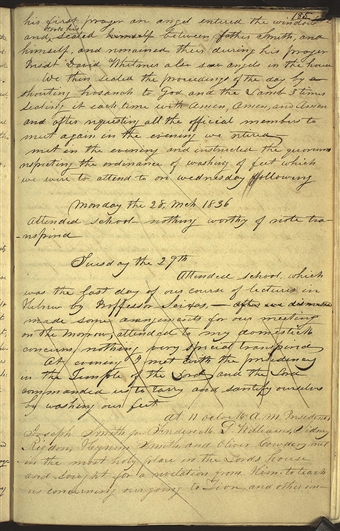 185
his first prayer an angel entered the window
took his
and seated himself between father Smith, and
himself, and remained their during his prayer
Presdt David Whitmer also saw angels in the house
We then sealed the proceedings of the day by a
shouting hosanah to God and the Lamb 3 times
sealing it each time with Amen, Amen, and Amen
and after requesting all the official members to
meet again in the evening we retired
met in the evening and instructed the quorums
respecting the ordinance of washing of feet which
we were to attend to on wednesday following
Monday the 28. Mch 1836
Attended school nothing worthy of note tra-
nspired
Tuesday the 29th
Attended school, which
was the last day of our course of lectures in
Hebrew by Proffessor Seixas, — after we dismissed
made some arrangements for our meeting
on the morrow, attended to my domestick
concerns, nothing very special transpired
At evening I met with the presidency
in the Temple of the Lord and the Lord
commanded us to tarry and santify ourselves
by washing our feet
At 11 oclock A.M. Presidents
Joseph Smith Jn Frederick G. Williams, Sidney
Rigdon, Hyrum Smith and Oliver Cowdery met
in the most holy place in the Lords house
and sought for a revelation from Him to teach
us concerning our going to Zion, and other im-